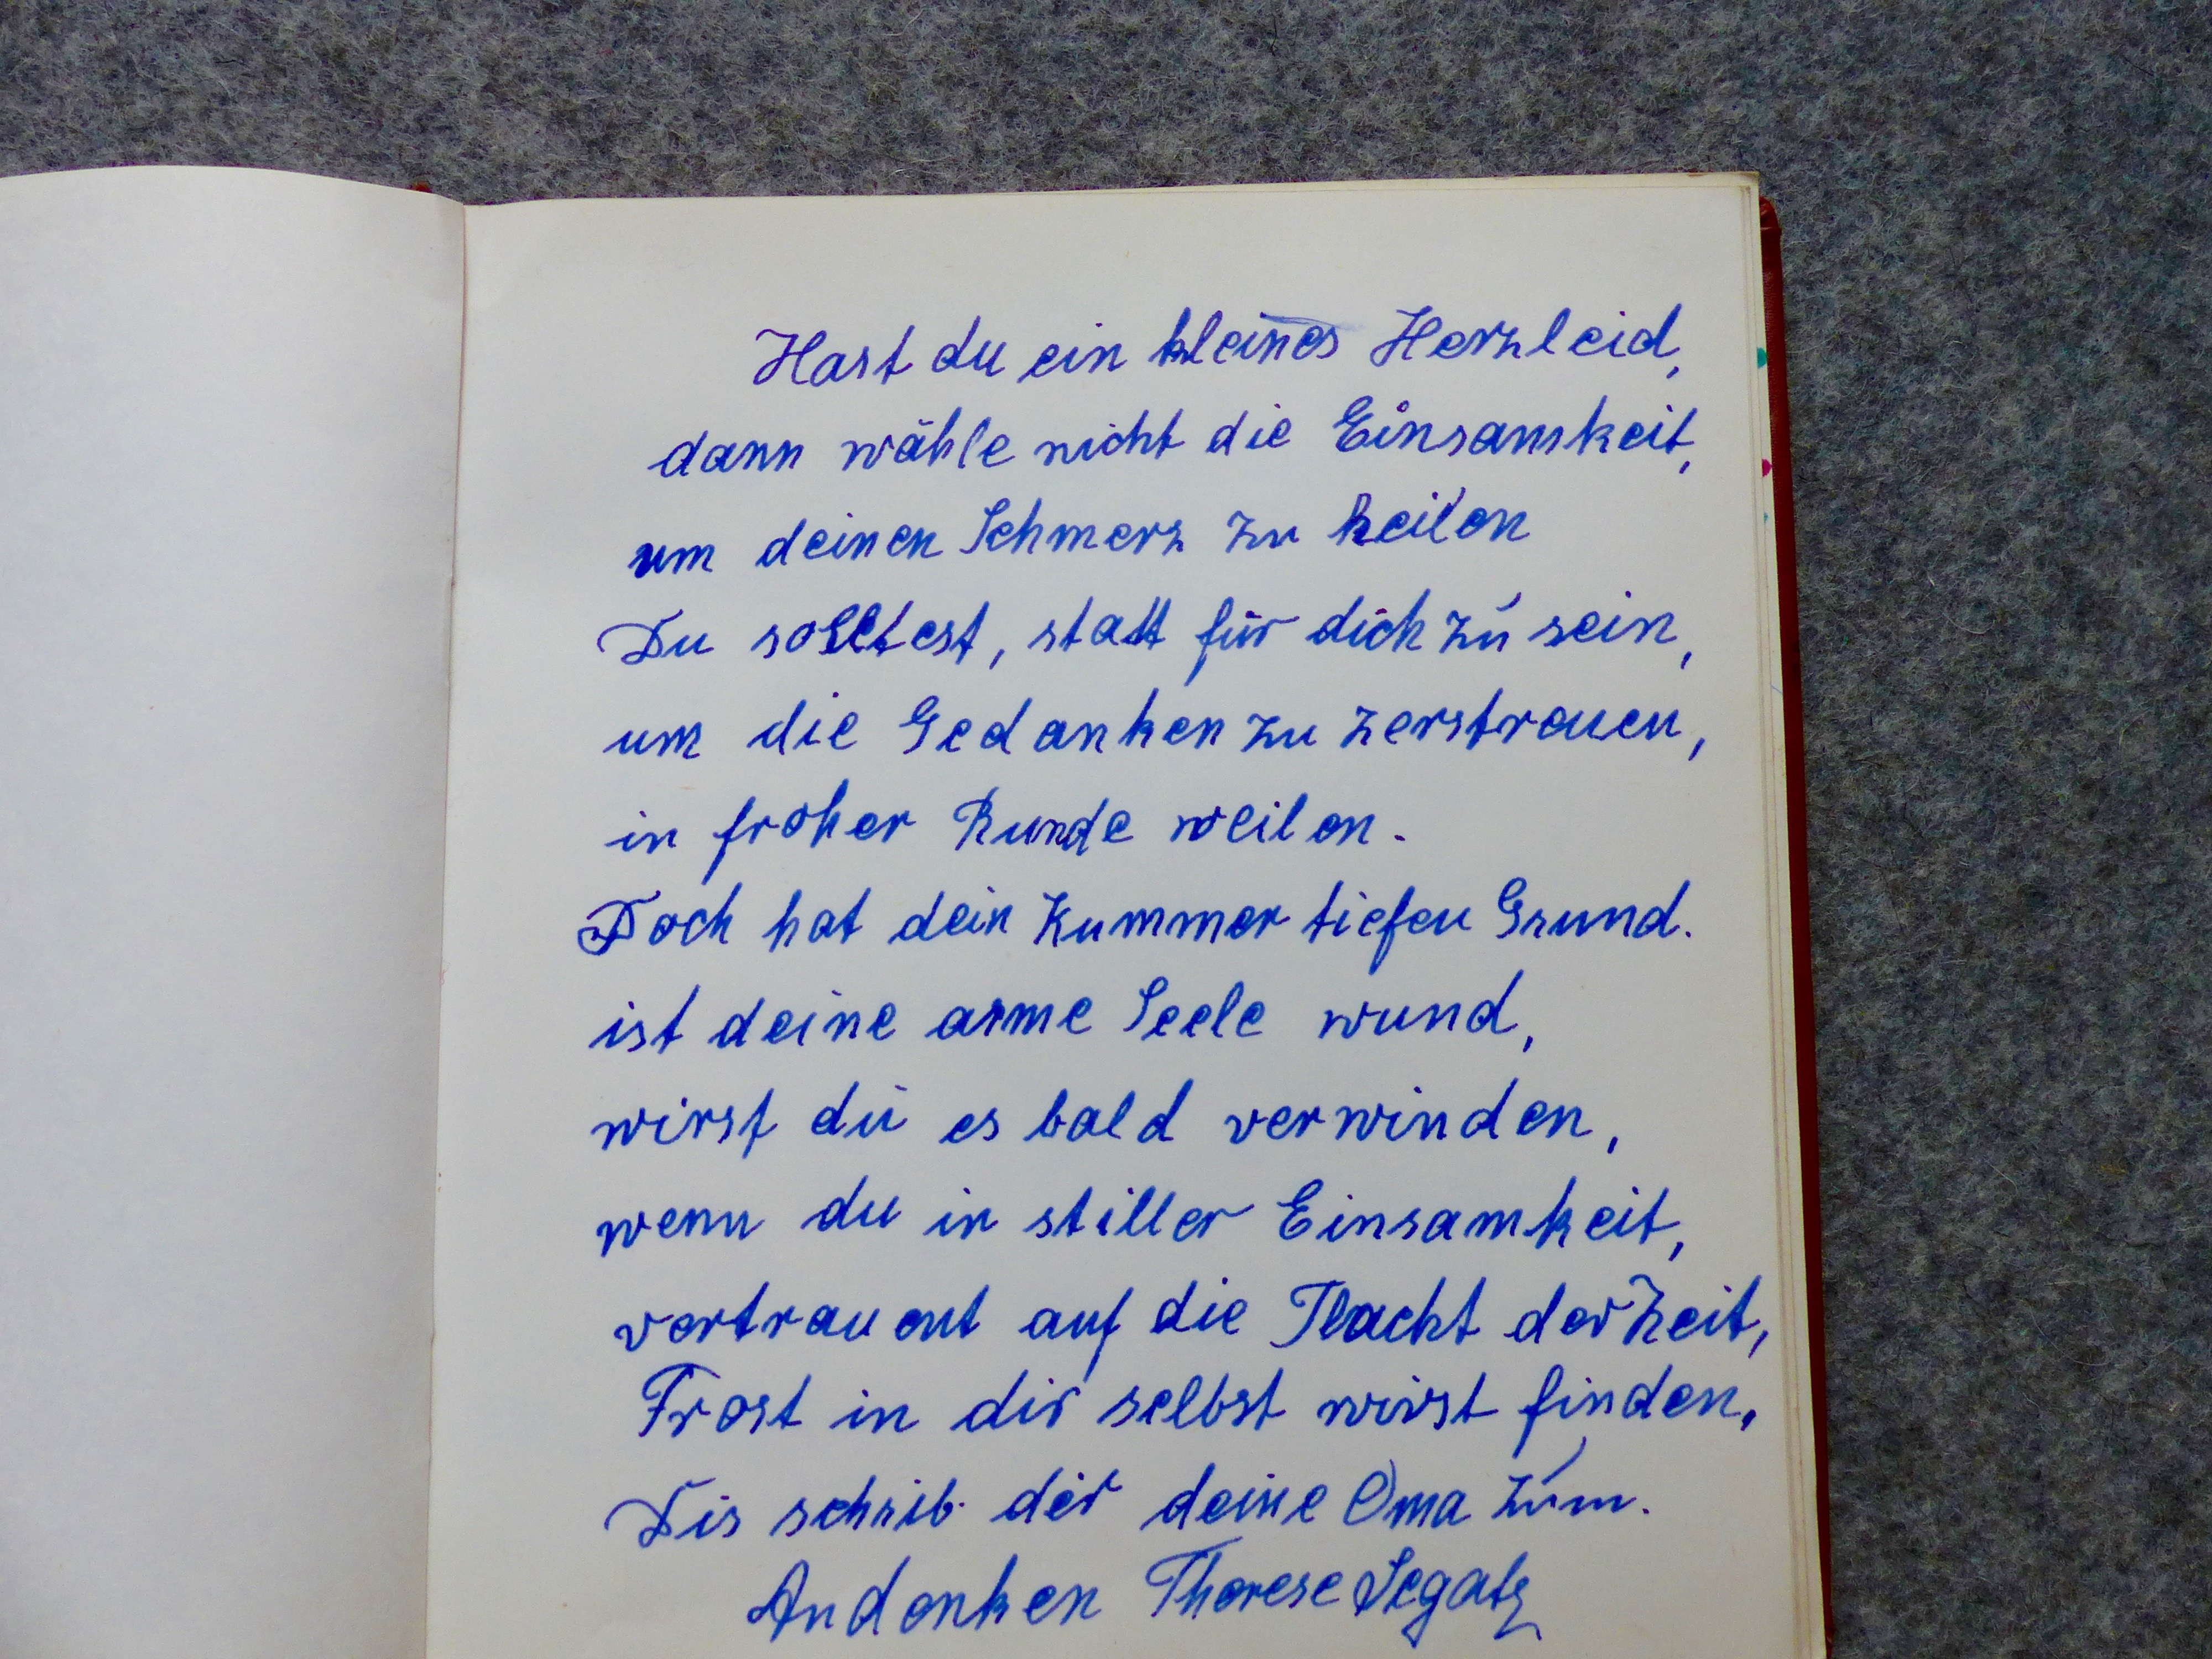 Hast du ein kleines Herzleid,
dann wähle nicht die Einsamkeit,
um deinen Schmerz zu heilen
Du solltest, statt für dich zu sein,
um die Gedanken zu zerstreuen,
in froher Runde weilen.
Doch hat dein Kummer tiefen Grund.
ist deine arme Seele wund,
wirst du es bald verwinden,
wenn du in stiller Einsamkeit,
vertrauent auf die Macht der Zeit,
Trost in dir selbst wirst finden.
Dis schrib dir deine Oma zum.
Andenken Therese Segatz